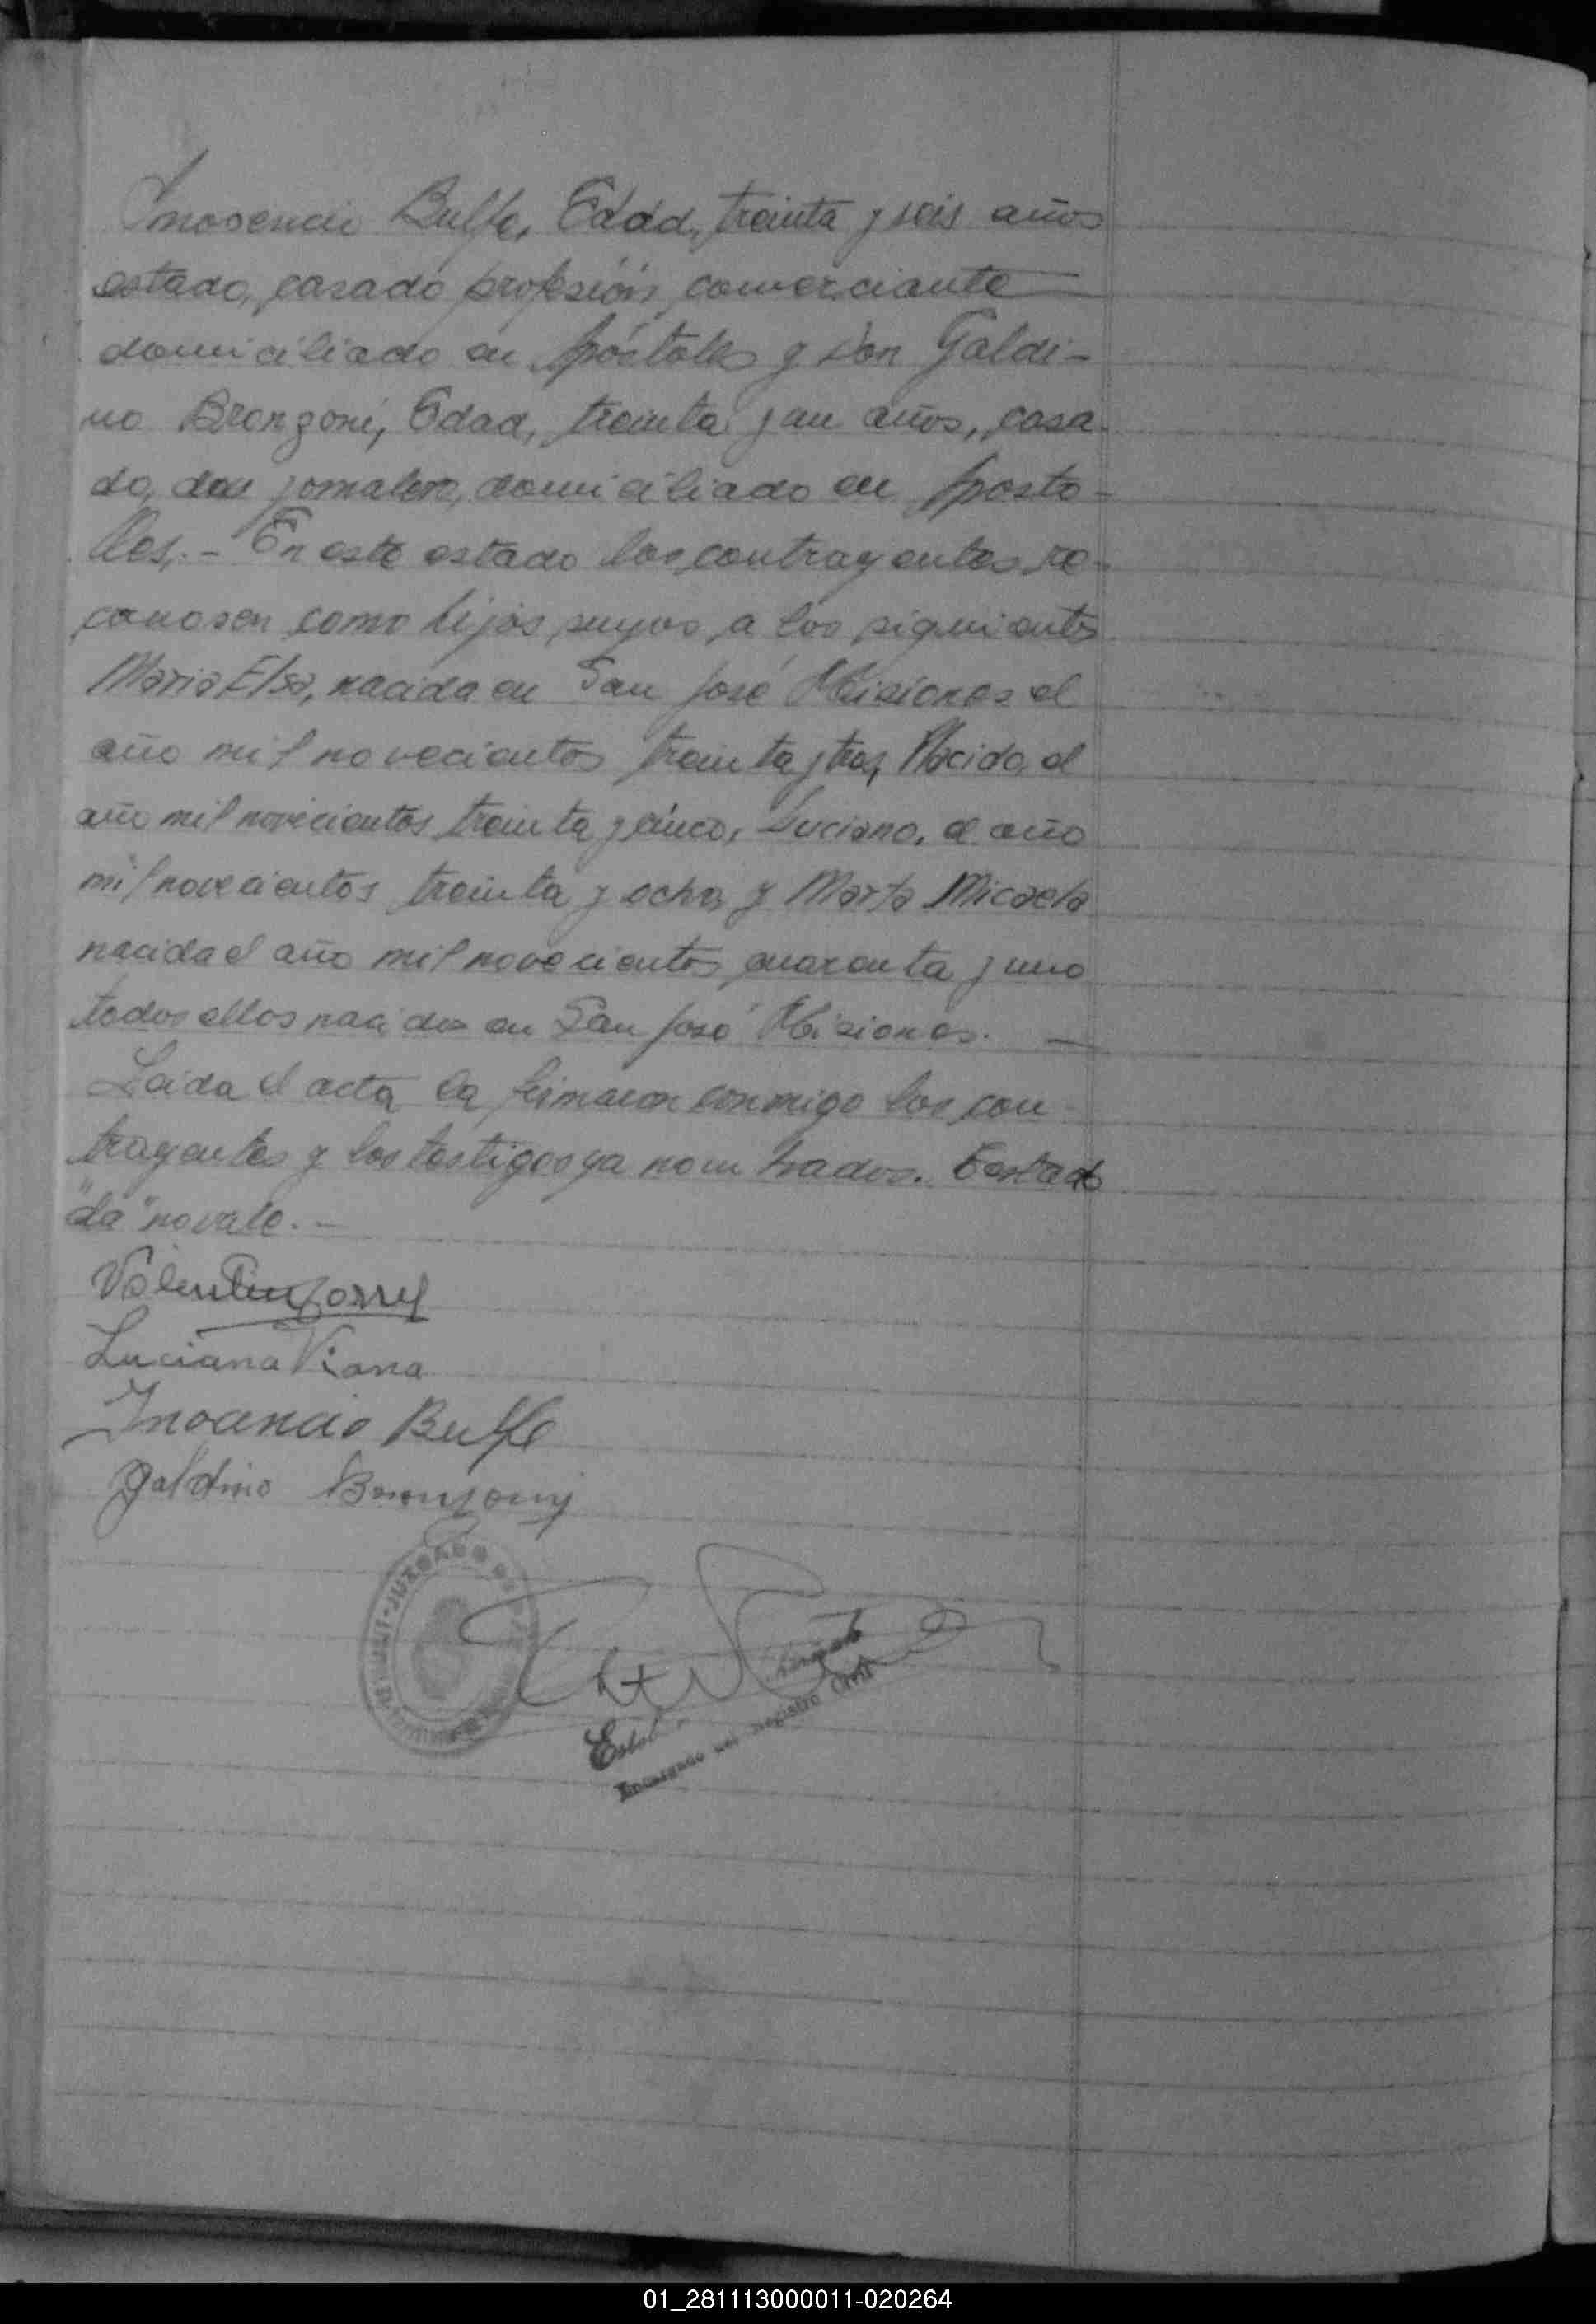 Inosencio Bulfe, Edad, treinta y seis años
estado, casado profesión, comerciante
domiciliado en Apóstoles y Don Galdi-
no Bronzoni, Edad, treinta y un años, casa-
do, jornalero, domiciliado en Aposto-
les,.- En este estado los contrayentes re-
conosen como hijos suyos a los siguientes
Maria Elsa, nacida en San José Misiones el
año mil novecientos treinta y tres, Placido, el
año mil novecientos treinta y cinco, Luciano, el año
mil novecientos treinta y ocho, y Marta Micaela
nacida el año mil novecientos cuarenta y uno
todos ellos nacidos en San José Misiones. —
Leida el acta la firmaron conmigo los con-
trayentes y los testigos ya nombrados. Testado
"da" no vale. -
Valentin
Luciana Viana
Inocencio Bulfe
Galdino Bronzoni
JUZGADO DE
Encargado del Registro Civil
01_281113000011-020264